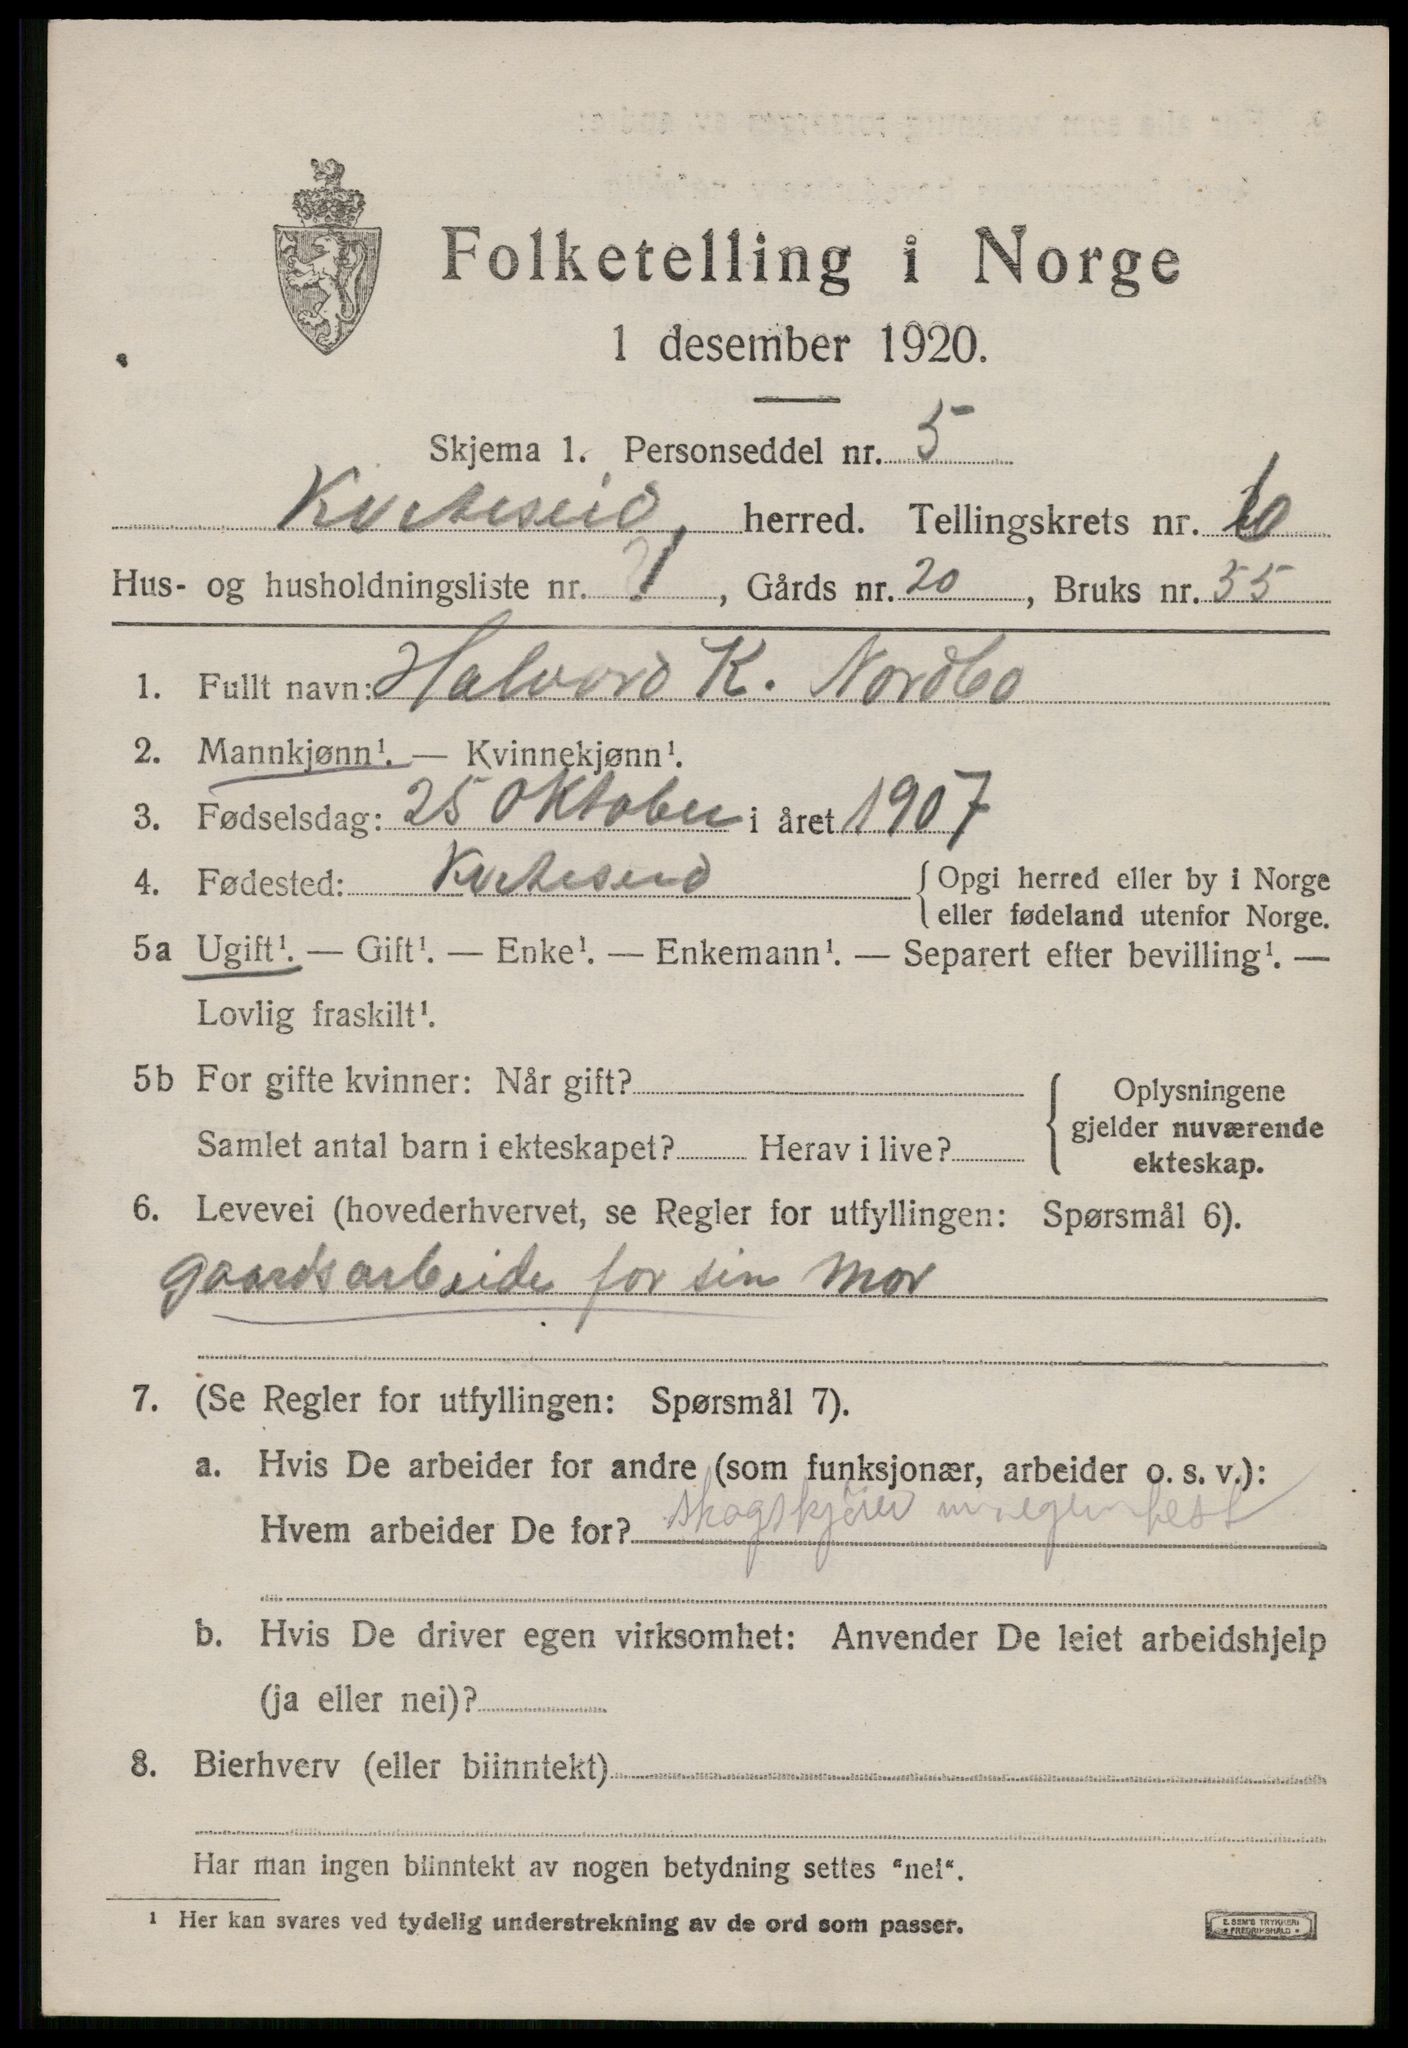 Folketelling i Norge
1 desember 1920.
Skjema 1. Personseddel nr. 5
Kviteseid, herred. Tellingskrets nr. 10
Hus- og husholdningsliste nr. , Gårds nr. 20, Bruks nr. 55
1. Fullt navn: Halvord K. Nordbo
2. Mannkjønn¹. — Kvinnekjønn¹.
3. Fødselsdag: 25 Oktober i året 1907
4. Fødested: Kviteseid { Opgi herred eller by i Norge
eller fødeland utenfor Norge.
5a Ugift¹. — Gift¹. — Enke¹. — Enkemann¹. — Separert efter bevilling¹. —
Lovlig fraskilt¹.
5b For gifte kvinner: Når gift? { Oplysningene
gjelder nuværende
Samlet antal barn i ekteskapet? Herav i live? ekteskap.
6. Levevei (hovederhvervet, se Regler for utfyllingen: Spørsmål 6).
gaardsarbeide for sin mor
7. (Se Regler for utfyllingen: Spørsmål 7).
a. Hvis De arbeider for andre (som funksjonær, arbeider o. s. v.):
Hvem arbeider De for? skogskjører m egen hest
b. Hvis De driver egen virksomhet: Anvender De leiet arbeidshjelp
(ja eller nei)?
8. Bierhverv (eller biinntekt)
Har man ingen biinntekt av nogen betydning settes "nei".
¹ Her kan svares ved tydelig understrekning av de ord som passer.
E. SEM'S TRYKKERI
FREDRIKSHALD